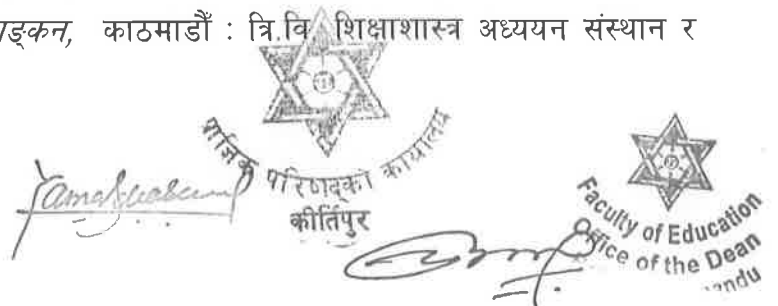 ङ्कन, काठमाडौँ : त्रि.वि. शिक्षाशास्त्र अध्ययन संस्थान र
प्राज्ञिक परिषद्को कार्यालय
कीर्तिपुर
Faculty of Education
Office of the Dean